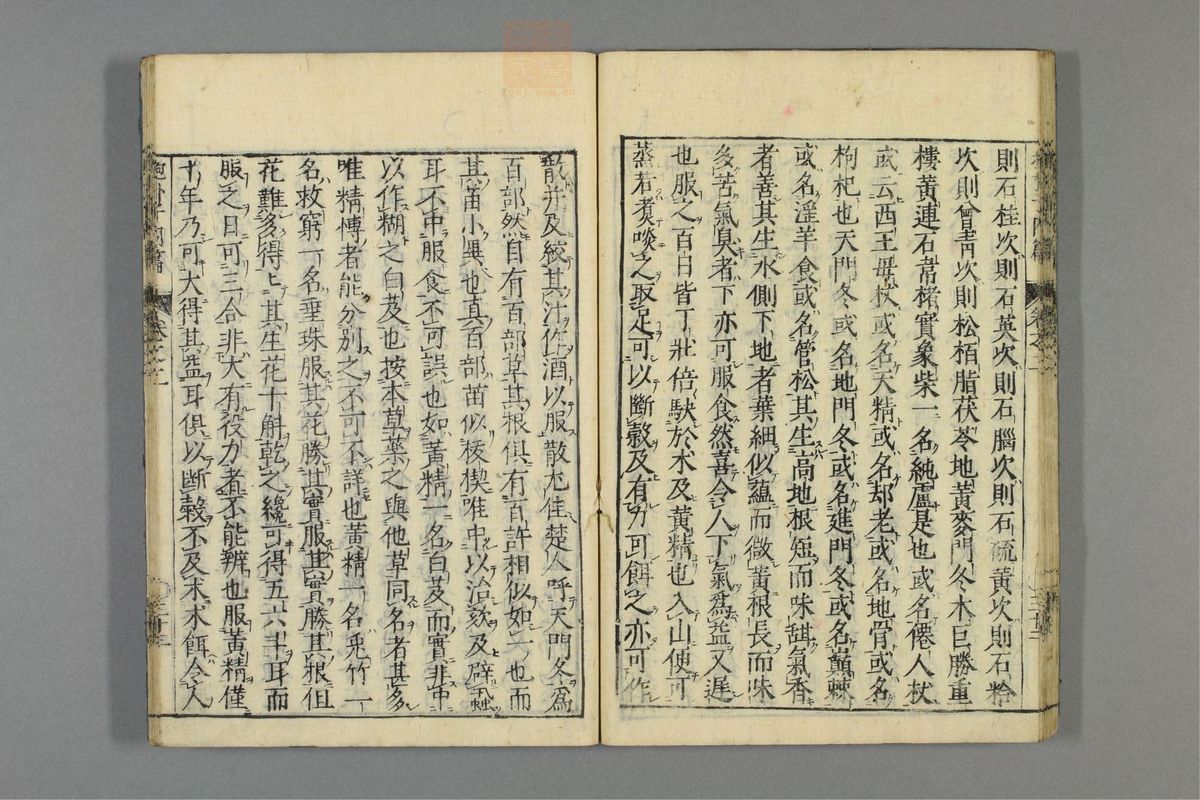 則石桂次則石英次則石腦次則石硫黃次則石粉
次則曾靑次則松栢脂茯苓地黃麥門冬木巨勝重
樓黃連石韋楮實象柴一名純盧是也或名僊人杖
或云西王母杖或名天精或名却老或名地骨或名
枸杞也天門冬或名地門冬或名進門冬或名顚棘
或名淫羊食或名管松其生高地根短而味甜氣香
者善其生水側下地者葉細似蘊而微黃根長而味
多苦氣臭者下亦可服食然喜令人下氣爲益又遲
也服之百日皆丁壯倍駃於朮及黃精也入山便可
蒸若煮啖之取足可以斷穀及有力可餌之亦可作
散并及絞其汁作酒以服散尤佳楚人呼天門冬爲
百部然自有百部草其根俱有百許相似如一也而
其苗小異也眞百部苗似菝楔唯中以治欬及辟蝨
耳不中服食不可誤也如黃精一名白芨而實非中
以作糊之白芨也按本草藥之與他草同名者甚多
唯精博者能分別之不可不詳也黃精一名兎竹一
名救窮一名垂珠服其花勝其實服其實勝其根但
花難多得也其生花十斛乾之纔可得五六斗耳而
服之日可三合非大有役力者不能辨也服黃精僅
十年乃可大得其益耳俱以斷穀不及朮朮餌令人